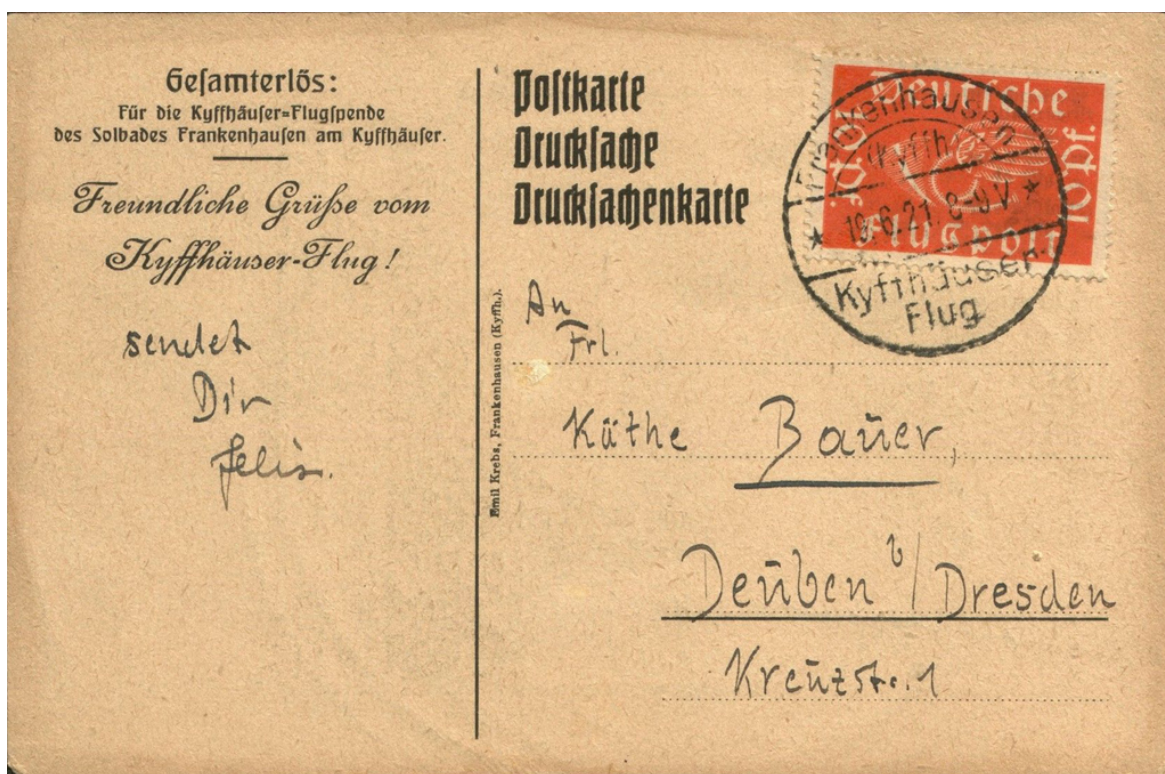 Gesamterlös:
Für die Kyffhäuser-Flugspende
des Solbades Frankenhausen am Kyffhäuser.
Freundliche Grüße vom
Kyffhäuser-Flug!
sendet
Dir
Felix.
Emil Krebs, Frankenhausen (Kyffh.).
Postkarte
Drucksache
Drucksachenkarte
Deutsche
Flugpost
10 Pf.
10 Pf.
Frankenhausen
(Kyffh.)
19.6.21. 8-9V
Kyffhäuser-
Flug
An
Frl.
Käthe Bauer,
Deuben b/Dresden
Kreuzstr. 1